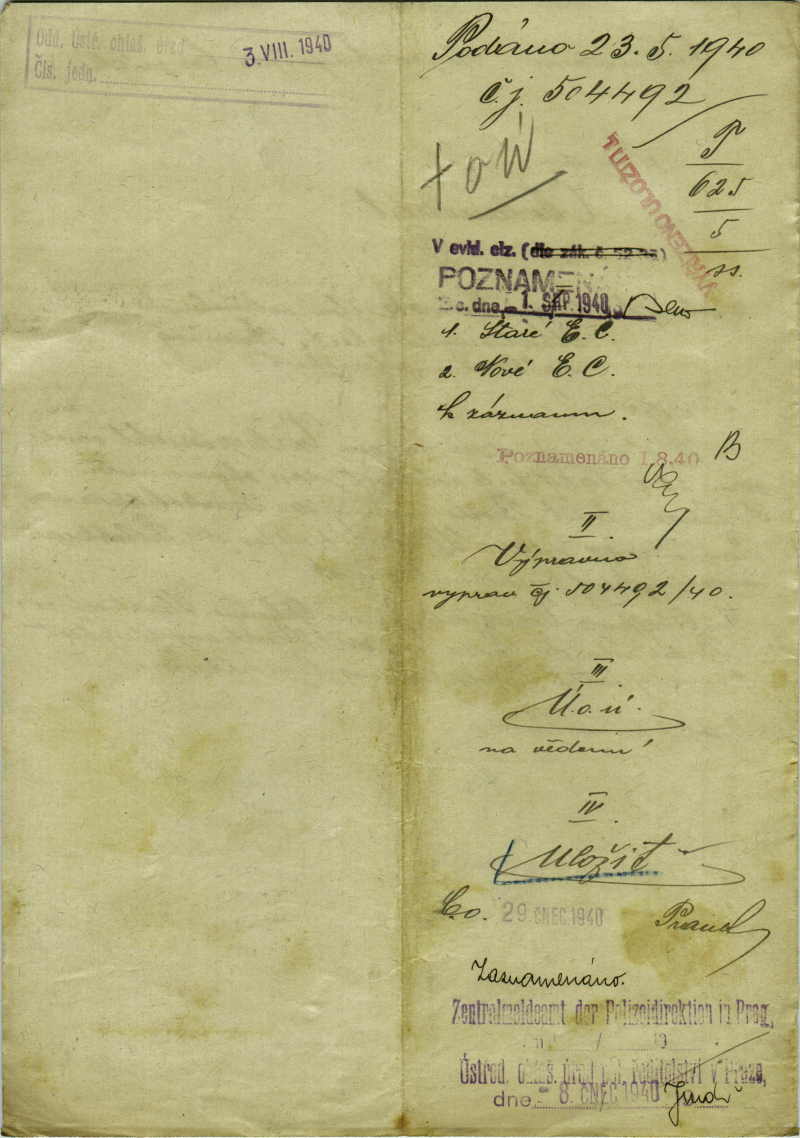 Odd. Ústř. ohlaš. úřad
3. VIII. 1940
Čís. jedn.
Podáno 23. 5. 1940
č. j. 504492
P
625
5
ss.
V evid. ciz. (dle zák. č. 52/35)
POZNAMEN
dne 1. SRP. 1940
1. Staré E. C.
2. Nové E. C.
k záznamu.
Poznamenáno 1.8.40
B
II.
Výpravna
vyprav čj. 504492/40.
III.
Ú. o. ú.
na vědomí
IV.
Uložit
29 ČNEC 1940
Zaznamenáno.
Zentralmeldeamt der Polizeidirektion in Prag,
Ústřed. ohlaš. úřad pol. ředitelství v Praze,
dne 8. ČNEC 1940